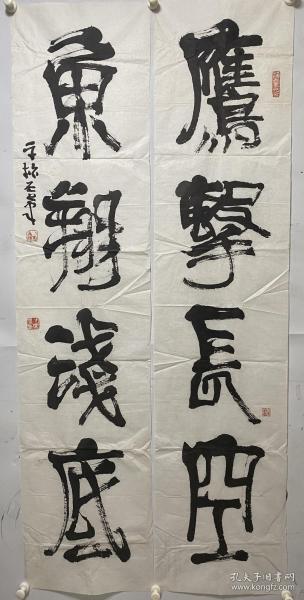 鷹擊長空
魚翔淺底
孔夫子旧书网